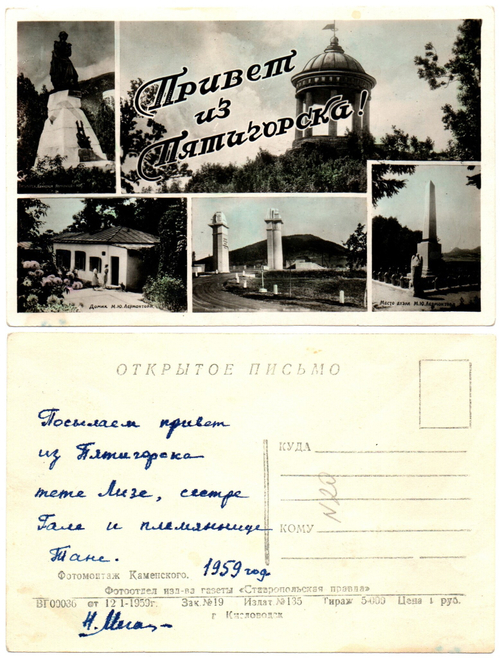 Привет
из
Пятигорска!
Домик М.Ю.Лермонтова
Место дуэли М.Ю.Лермонтова
ОТКРЫТОЕ ПИСЬМО
Посылаем привет
из Пятигорска
тете Лизе, сестре
Гале и племяннице
Тане.
1959 год
КУДА
КОМУ
Фотомонтаж Каменского.
Фотоотдел изд-ва газеты «Ставропольская правда»
ВГ00036 от 12 1-1959г. Зак.№19 Издат.№135 Тираж 5-000 Цена 1 руб.
г Кисловодск